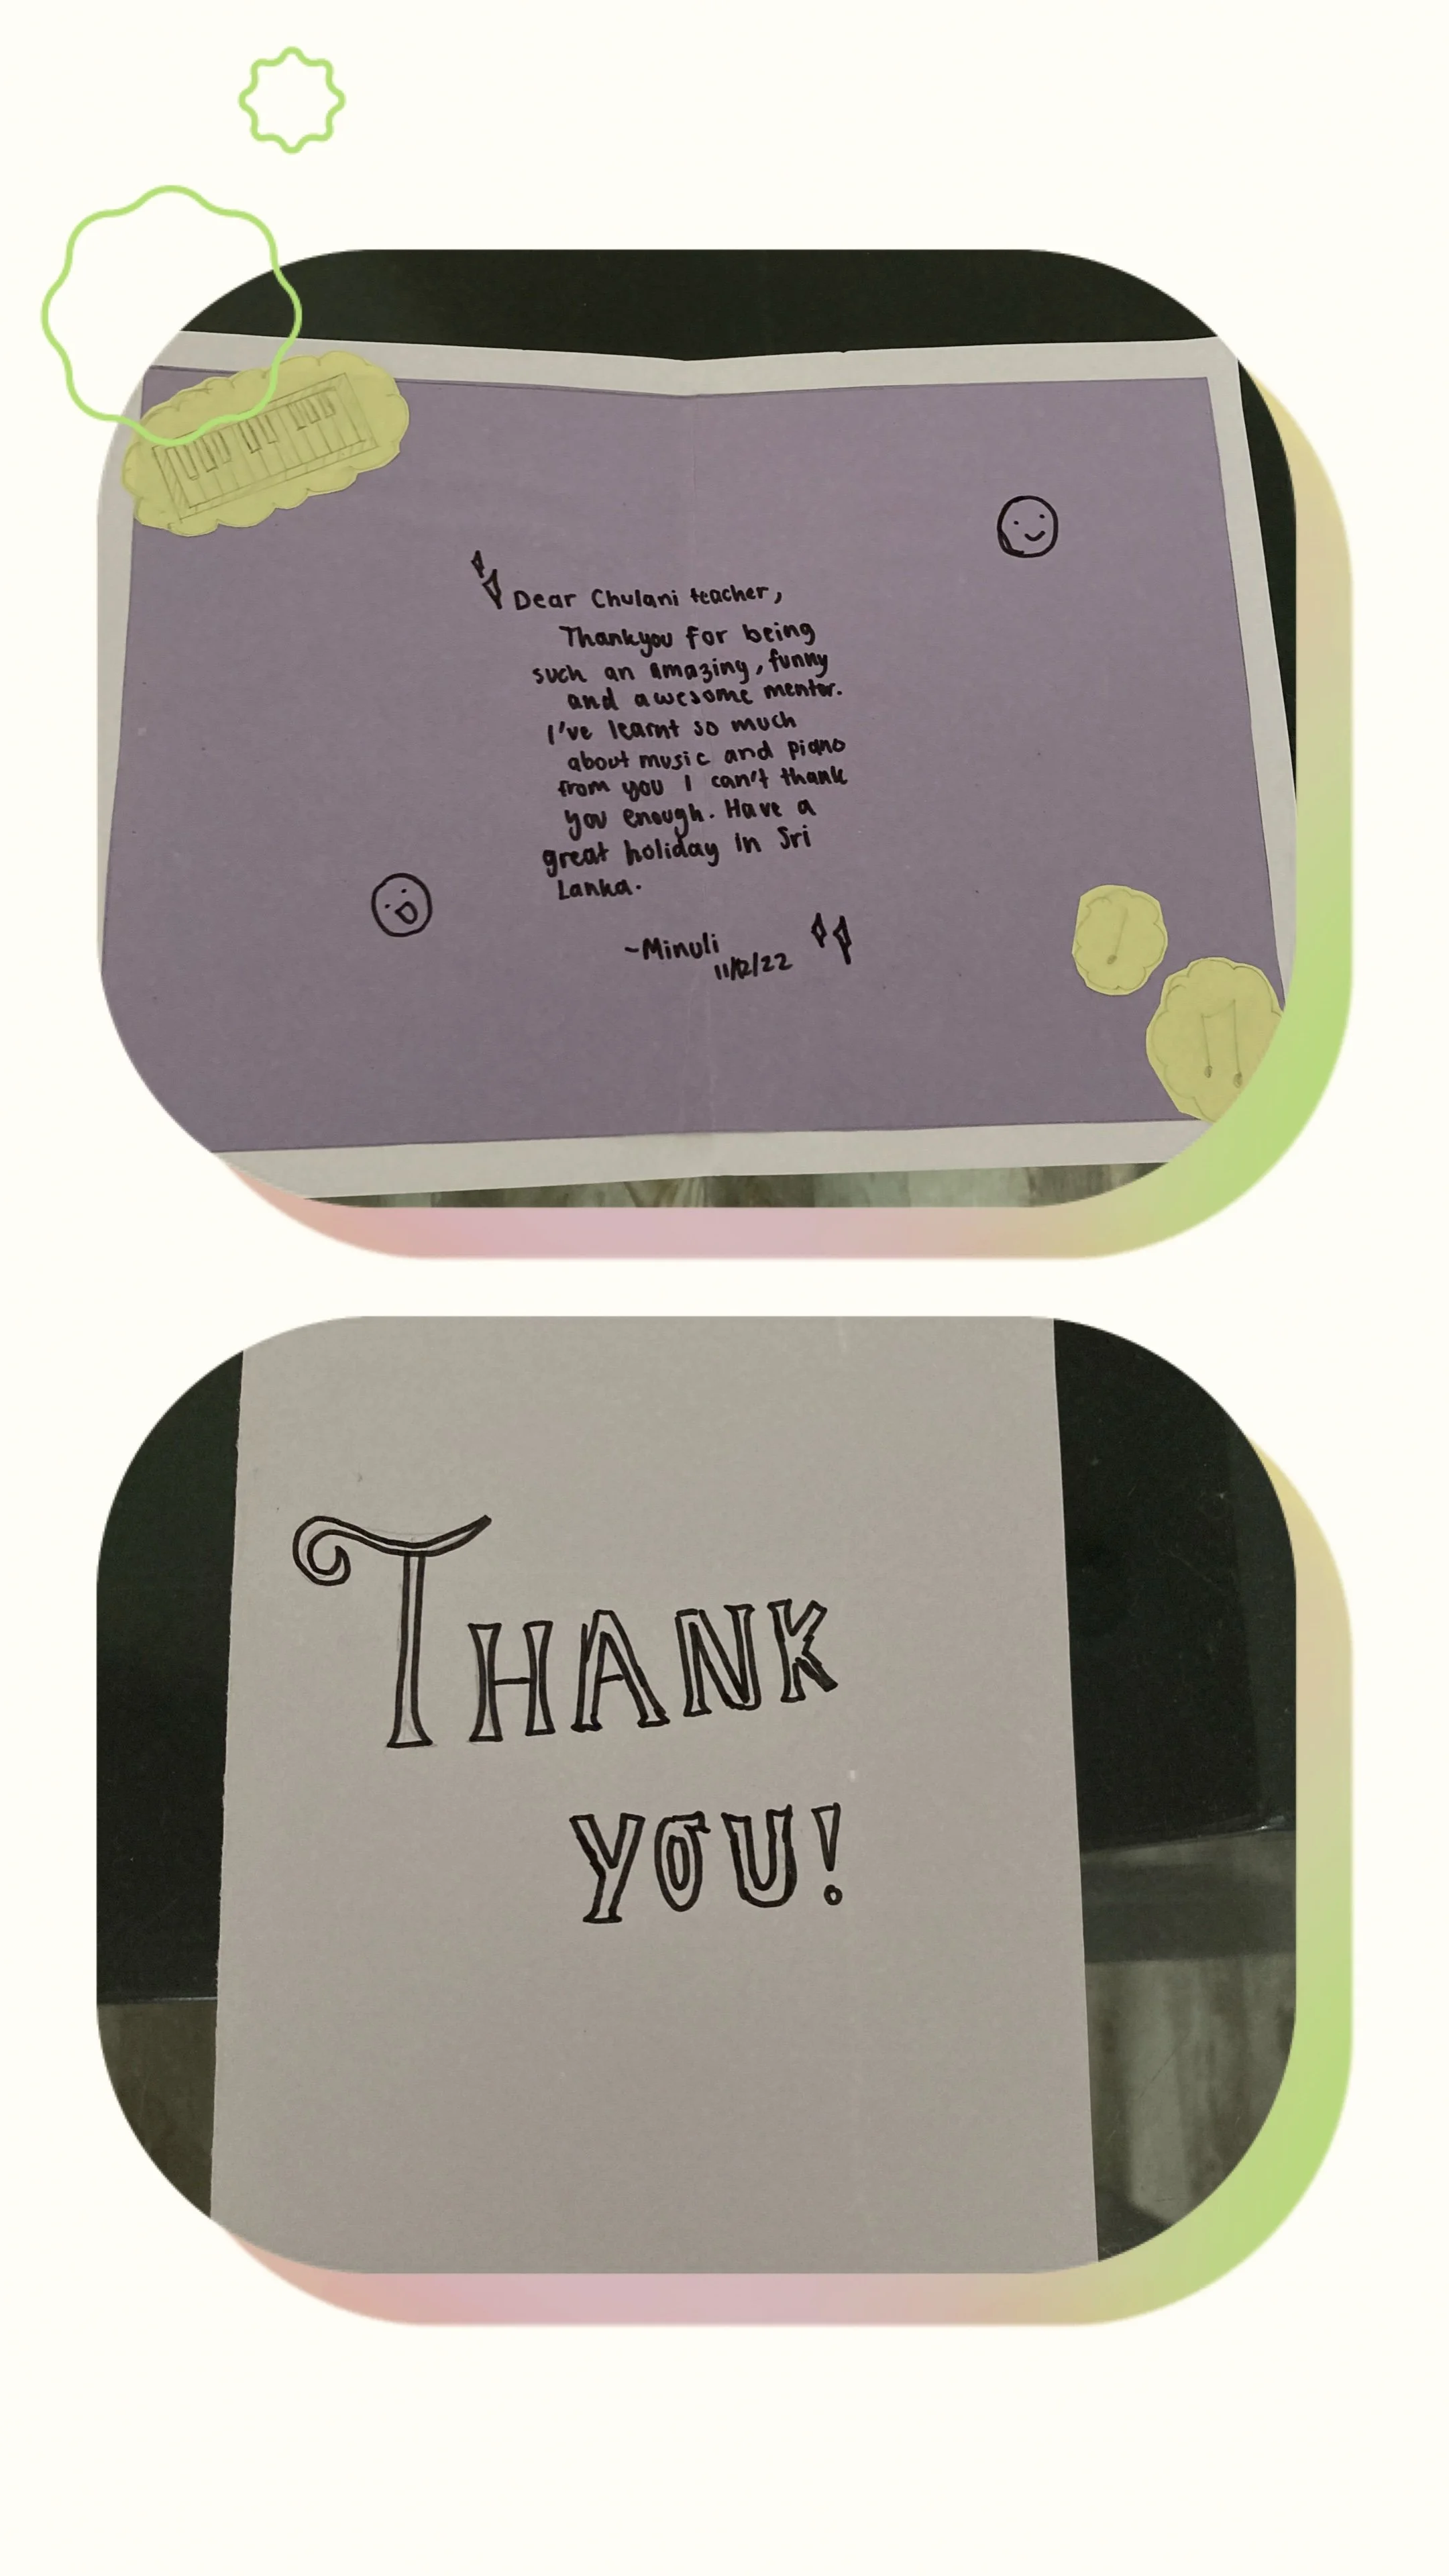 Dear Chulani teacher,
Thankyou for being
such an amazing, funny
and awesome mentor.
I've learnt so much
about music and piano
from you I can't thank
you enough. Have a
great holiday in Sri
Lanka.
~Minuli
11/12/22
THANK
YOU!